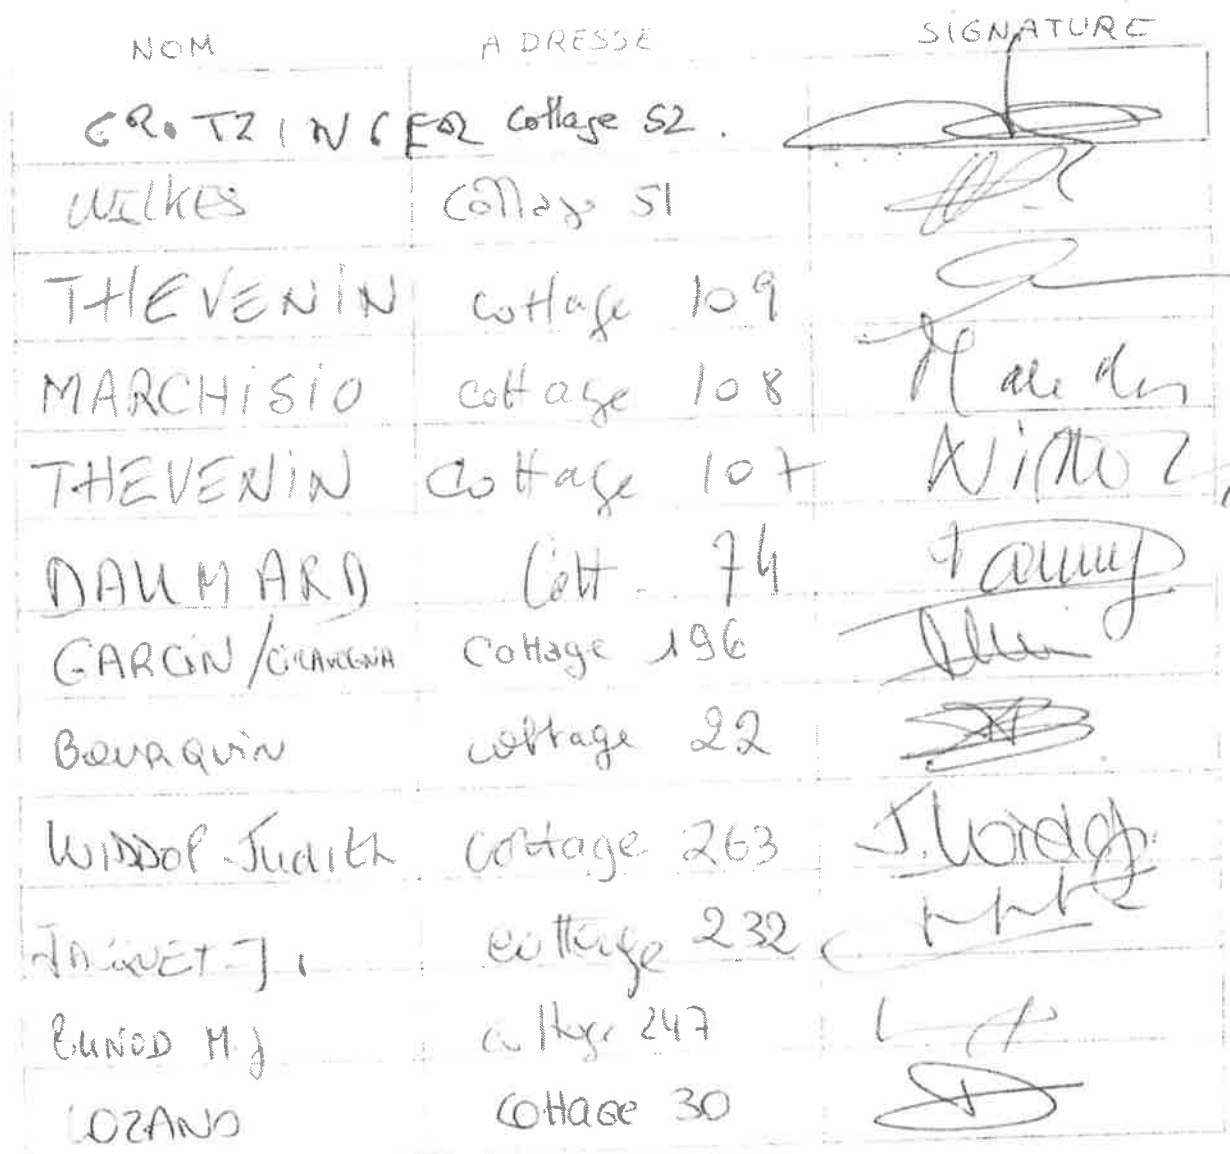 NOM ADRESSE SIGNATURE
GROTZINGER Cottage 52.
WILKES Cottage 51
THEVENIN cottage 109
MARCHISIO cottage 108
THEVENIN Cottage 107
DAUMARD Cott. 74
GARCIN/CIRAVEGNA Cottage 196
BOURQUIN cottage 22
WIDDOP Judith cottage 263 J. Widdop
JACQUET J. cottage 232
BUNOD M.J cottage 247
LOZANO Cottage 30